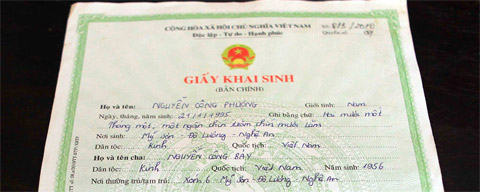 CỘNG HÒA XÃ HỘI CHỦ NGHĨA VIỆT NAM
Độc lập - Tự do - Hạnh phúc
Số: /2010
Quyển số:
GIẤY KHAI SINH
(BẢN CHÍNH)
Họ và tên: NGUYỄN CÔNG PHƯỢNG Giới tính: Nam
Ngày, tháng, năm sinh: 21/01/1995 Ghi bằng chữ: Hai mươi mốt
Tháng một, một ngàn chín trăm chín mươi lăm
Nơi sinh: Mỹ Sơn - Đô Lương - Nghệ An
Dân tộc: Kinh Quốc tịch: Việt Nam
Họ và tên cha: NGUYỄN CÔNG BẢY
Dân tộc: Kinh Quốc tịch: Việt Nam Năm sinh: 1956
Nơi thường trú/tạm trú: Xóm 6 - Mỹ Sơn - Đô Lương - Nghệ An